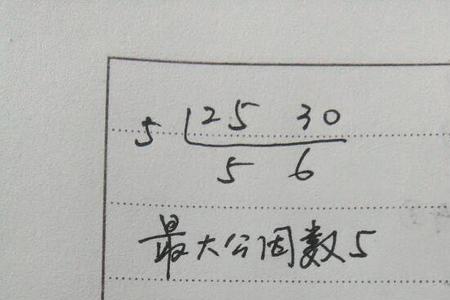 5 25 30
5 6
最大公因数5